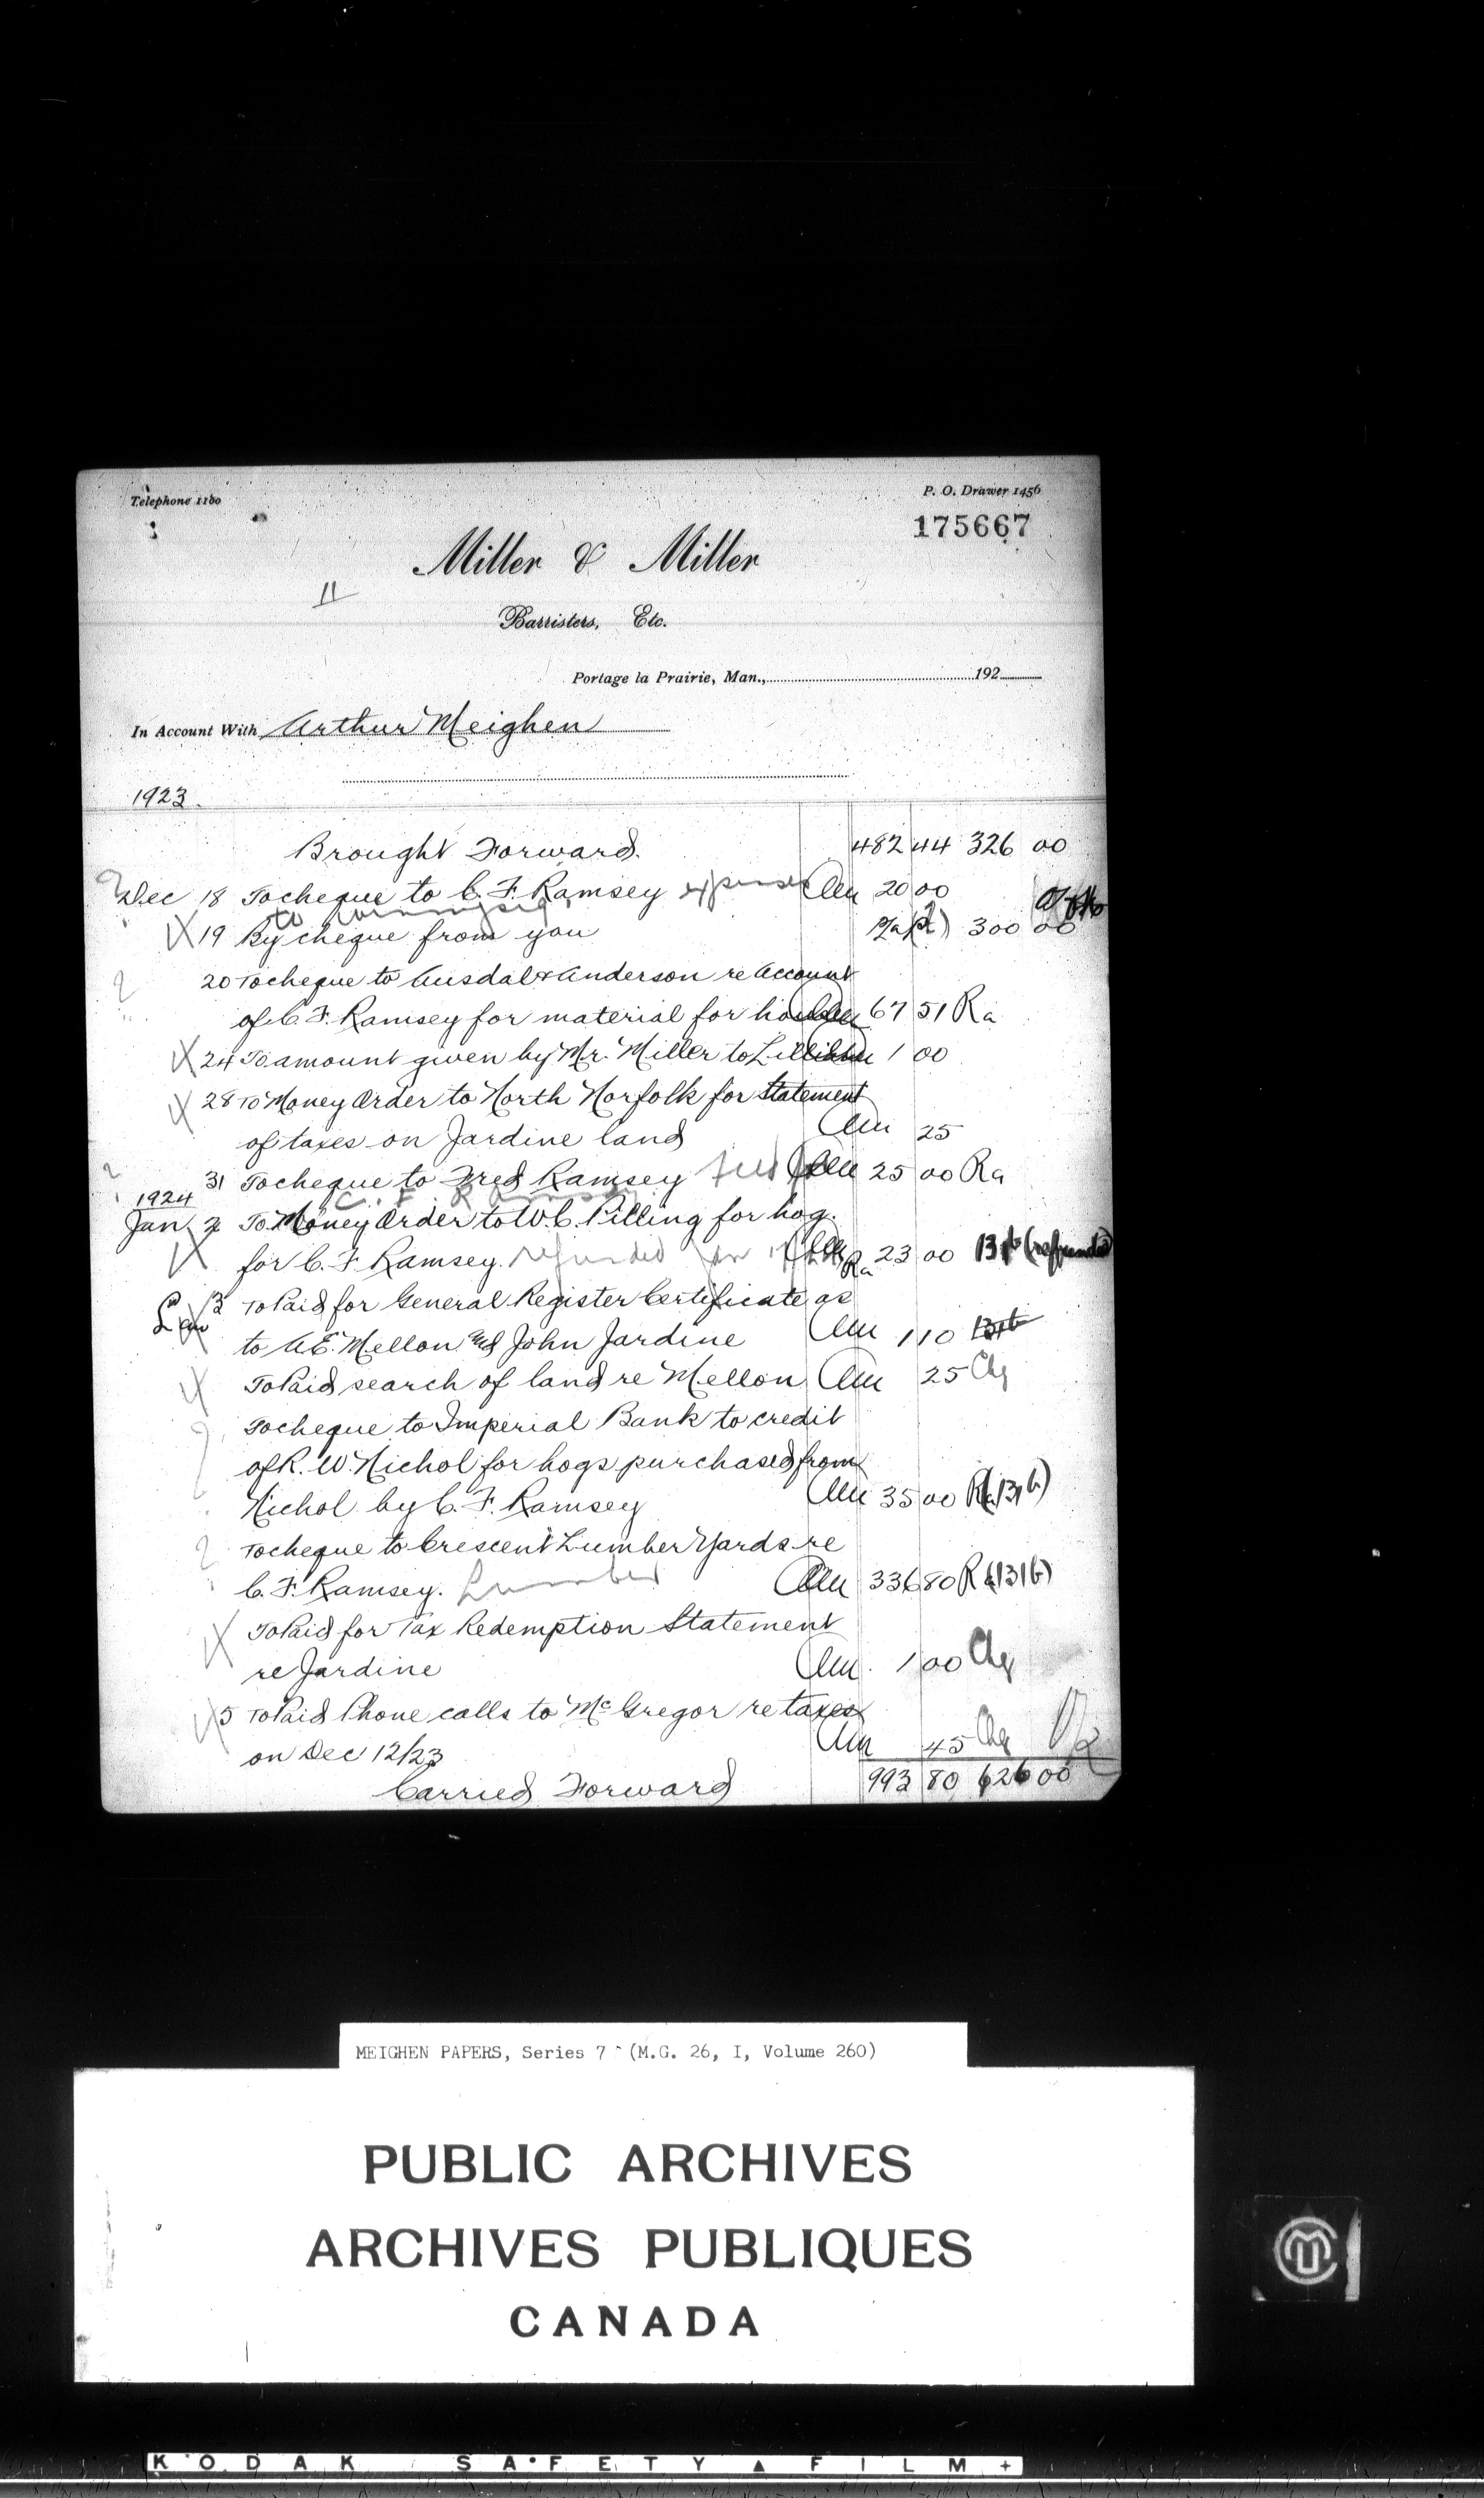 Telephone 1180
P. O. Drawer 1456
175667
Miller & Miller
11
Barristers, Etc.
Portage la Prairie, Man., 192
In Account With Arthur Meighen
1923.
Brought Forward. 482 44 326 00
? Dec 18 To cheque to C. F. Ramsey expenses 20 00
to Winnipeg
X 19 By cheque from you 300 00
? 20 To cheque to Ausdal & Anderson re Account
of C. F. Ramsey for material for 67 51 Ra
X 24 To amount given by Mr. Miller to 1 00
X 28 To Money Order to North Norfolk for Statement
of taxes on Jardine land 25
? 31 To cheque to Fred Ramsey 25 00 Ra
C. F. Ramsey
1924
Jan 2 To Money Order to W. C. Pilling for hog.
X for C. F. Ramsey. refunded Jan Ra 23 00 (refunded)
3 To Paid for General Register Certificate as
X to A. E. Mellon and John Jardine 1 10
X To Paid search of land re Mellon 25 Chg
? To cheque to Imperial Bank to credit
of R. W. Nichol for hogs purchased from
Nichol by C. F. Ramsey 35 00
? To cheque to Crescent Lumber Yards re
C. F. Ramsey. Lumber 336 80
X To Paid for Tax Redemption Statement
re Jardine 1 00 Chg
X 5 To Paid Phone calls to McGregor re taxes
on Dec 12/23 45 Chg
Carried Forward 993 80 626 00
MEIGHEN PAPERS, Series 7 (M.G. 26, I, Volume 260)
PUBLIC ARCHIVES
ARCHIVES PUBLIQUES
CANADA
KODAK SAFETY ▲ FILM +